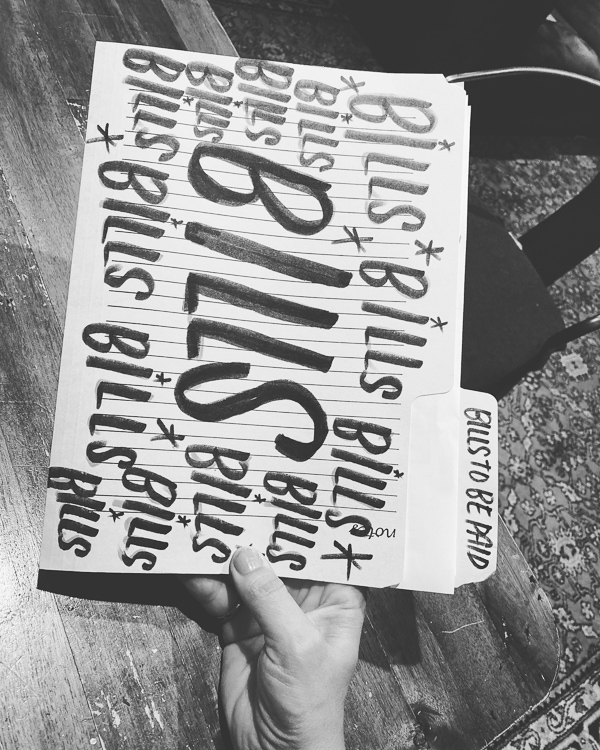 BILLS TO BE PAID
BILLS BILLS BILLS
BILLS
BILLS
BILLS
BILLS
BILLS
BILLS
BILLS
BILLS BILLS
BILLS
BILLS
BILLS
notes